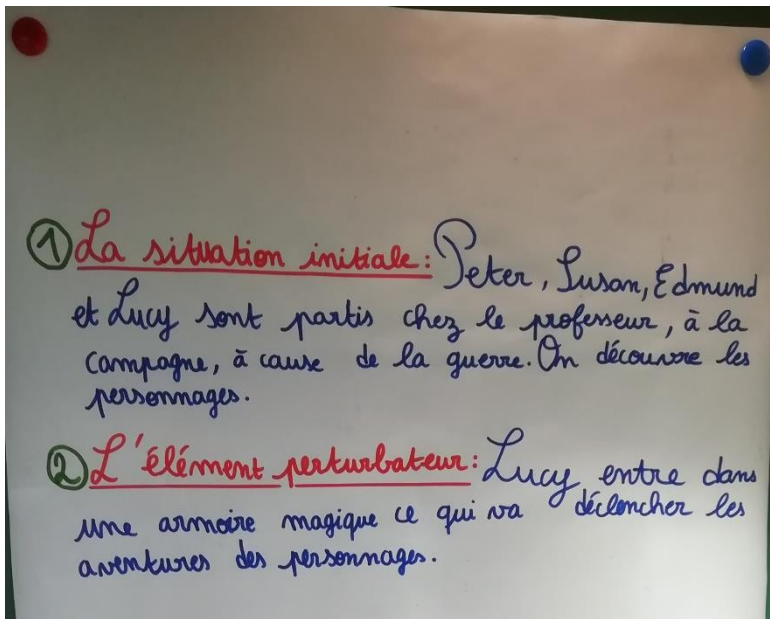 ① La situation initiale : Peter, Susan, Edmund
et Lucy sont partis chez le professeur, à la
campagne, à cause de la guerre. On découvre les
personnages.
② L'élément perturbateur : Lucy entre dans
une armoire magique ce qui va déclencher les
aventures des personnages.